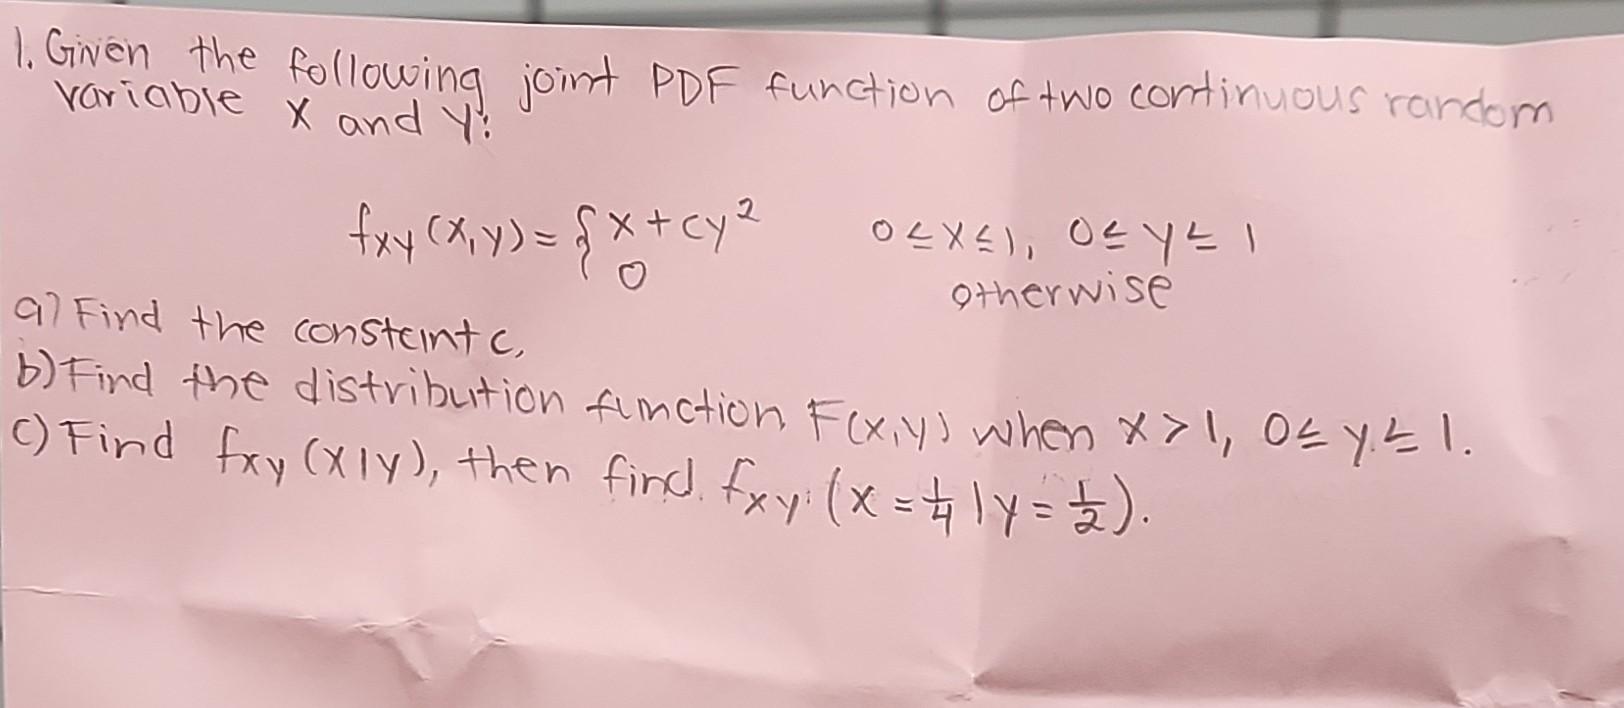 1. Given the following joint PDF function of two continuous random
variable X and Y:
fxy (x,y) = { x + cy²   0 ≤ x ≤ 1, 0 ≤ y ≤ 1
0   otherwise
a) Find the constant c.
b) Find the distribution function F(x,y) when x > 1, 0 ≤ y ≤ 1.
c) Find fxy (x|y), then find fxy (x = 1/4 | y = 1/2).